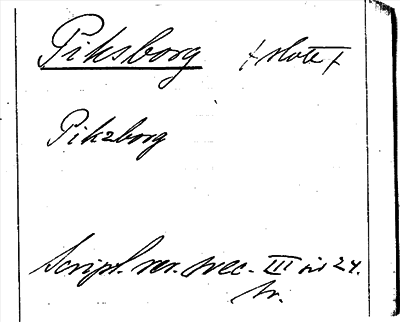 Piksborg † slott †
Pikzborg
Script. rer. svec. III sid 24.